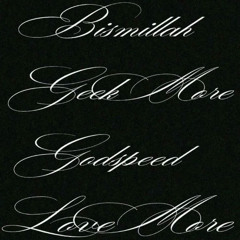 Bismillah
Geek More
Godspeed
Love More